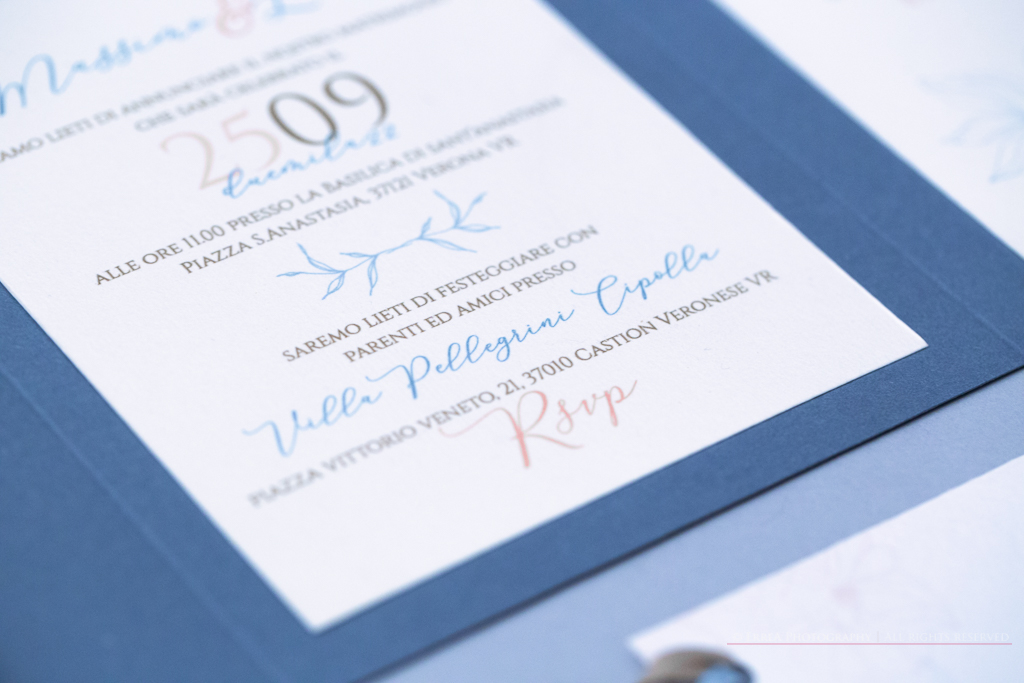 Massimo & L
AMO LIETI DI ANNUNCIARE IL NOSTRO
CHE SARÀ CELEBRATO IL
2509
duemila22
ALLE ORE 11.00 PRESSO LA BASILICA DI SANT'ANASTASIA
PIAZZA S.ANASTASIA, 37121 VERONA VR
SAREMO LIETI DI FESTEGGIARE CON
PARENTI ED AMICI PRESSO
Villa Pellegrini Cipolla
PIAZZA VITTORIO VENETO, 21, 37010 CASTION VERONESE VR
Rsvp
ALL RIGHTS RESERVED